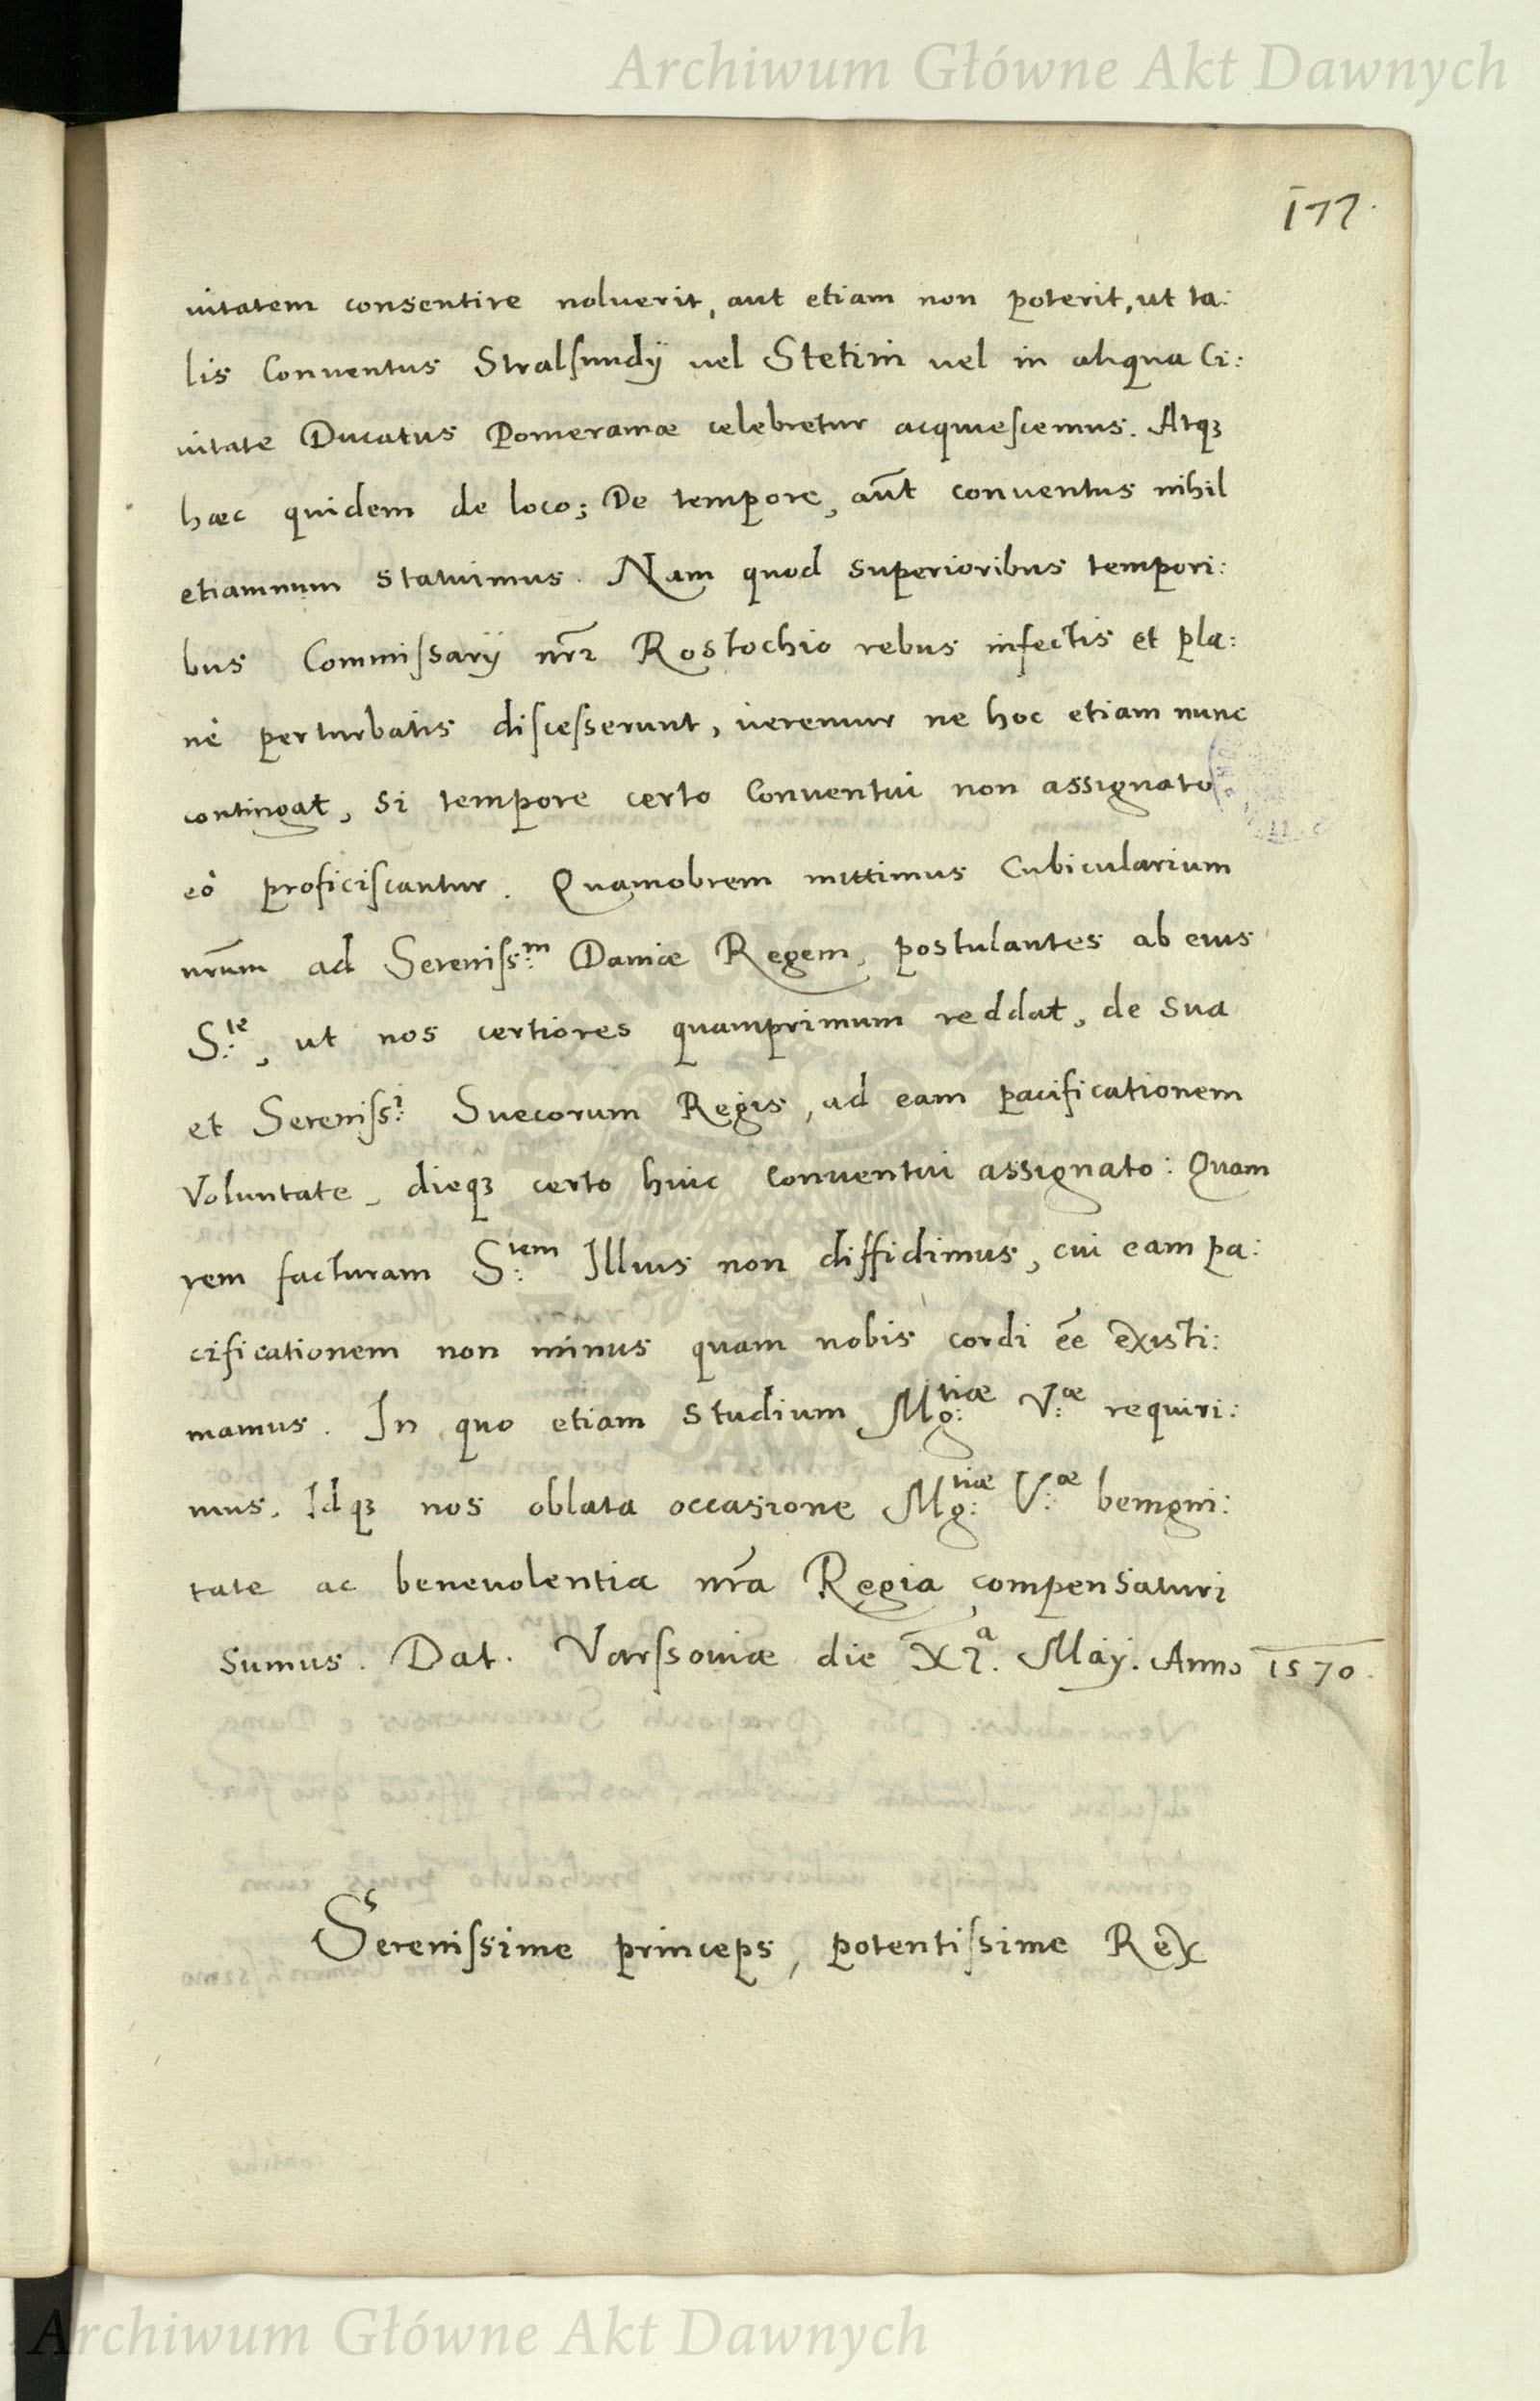 Archiwum Główne Akt Dawnych
177.
uitatem consentire noluerit, aut etiam non poterit, ut ta:
lis Conuentus Stralsundÿ uel Stetini uel in aliqua Ci:
uitate Ducatus Pomeraniæ celebretur acquiescemus. Atqꝫ
hæc quidem de loco; De tempore, aūt conuentus nihil
etiamnum statuimus. Nam quod superioribus tempori:
bus Commiſsarÿ nr̄i Rostochio rebus infectis et pla:
nè perturbatis diſceſserunt, ueremur ne hoc etiam nunc
contingat, si tempore certo Conuentui non assignato
eò proficiſcantur. Quamobrem mittimus Cubicularium
nr̄um ad Sereniſs:ᵐ Daniæ Regem, postulantes ab eius
S:ᵗᵉ, ut nos certiores quamprimum reddat, de sua
et Sereniſs:ⁱ Suecorum Regis, ad eam pacificationem
Voluntate, dieqꝫ certo huic conuentui assignato: Quam
rem facturam S:ᵗᵉᵐ Illius non diffidimus, cui eam pa:
cificationem non minus quam nobis cordi ēe existi:
mamus. In quo etiam studium Mg:ᵗⁱæ V:æ requiri:
mus. Idqꝫ nos oblata occasione Mg:ᵗⁱæ V:æ benigni:
tate ac beneuolentia nr̄a Regia compensaturi
sumus. Dat. Varſsouiæ die XI.ᵃ Maÿ. Anno 1570.
Sereniſsime princeps, potentiſsime Rex
Archiwum Główne Akt Dawnych